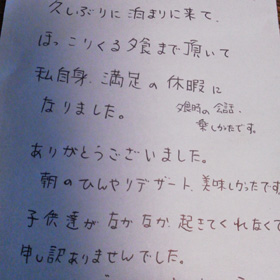 久しぶりに泊まりに来て、
ほっこりくる夕食まで頂いて
私自身、満足の休暇に
なりました。
夕食時の会話、
楽しかったです。
ありがとうございました。
朝のひんやりデザート、美味しかったです
子供達がなかなか起きてくれなくて
申し訳ありませんでした。